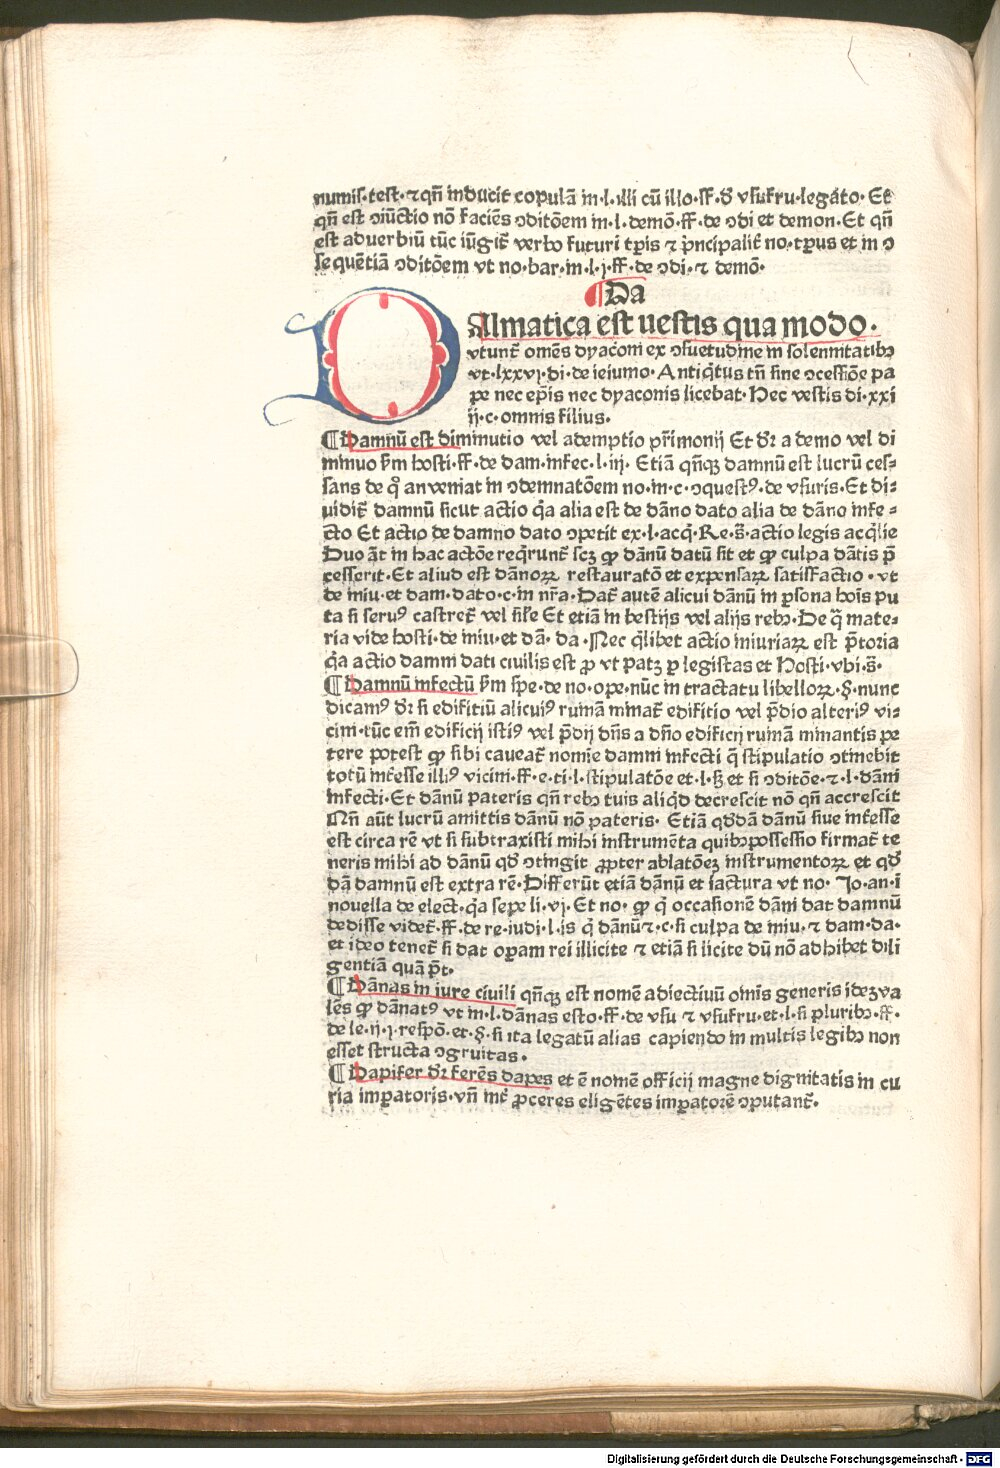 numis·test·⁊ qn̄ inducit copulā in·l·illi cū illo·ff·ꝺ vsufru·legato·Et
qn̄ est ↄiūctio nō faciēs ↄditōem in·l·demō·ff·de ↄdi et demon·Et qn̄
est aduerbiū tūc iūgit᷑ verbo futuri tꝑis ⁊ p̄ncipalit᷑ no·tꝑus et in ↄ
sequētiā ↄditōem vt no·bar·in·l·j·ff·de ↄdi·⁊ demō·
¶Da
Almatica est uestis qua modo·
vtunt᷑ omēs dyaconi ex ↄsuetudine in solennitatibꝰ
vt·lxxvj·di·de ieiunio·Antiq̇tus tn̄ sine ↄcessiōe pa
pe nec ep̄is nec dyaconis licebat·Hec vestis di·xxi
ij·c·omnis filius·
¶Damnū est diminutio vel ademptio pr̄imonij Et dr̄ a demo vel di
minuo ẜm hosti·ff·de dam·infec·l·iij·Etiā qn̄qꝫ damnū est lucrū ces⸗
sans de q̊ an veniat in ↄdemnatōem no·in·c·ↄquestꝰ·de vsuris·Et di⸗
uidit᷑ damnū sicut actio q̇a alia est de dāno dato alia de dāno infe⸗
cto Et actio de damno dato ↄpetit ex·l·acq̇·Re·s̄·actio legis acq̇lie
Duo āt in hac actōe req̇runt᷑ scꝫ ꝙ dānū datū sit et ꝙ culpa dātis p̄
cesserit·Et aliud est dānoꝝ restauratō et expensaꝝ satisfactio·vt
de iniu·et dam·dato·c·in nr̄a·Dat᷑ autē alicui dānū in ꝑsona hoīs pu
ta si seruꝰ castret᷑ vel sil̄e Et etiā in bestijs vel alijs rebꝰ·De q̄ mate⸗
ria vide hosti·de iniu·et dā·da·Nec q̇libet actio iniuriaꝝ est p̄toria
q̇a actio damni dati ciuilis est ꝓ vt patꝫ ꝑ legistas et Hosti·vbi·s̄·
¶Damnū infectū ẜm spe·de no·ope·nūc in tractatu libelloꝝ·§·nunc
dicamꝰ dr̄ si edifitiū alicuiꝰ ruinā minat᷑ edifitio vel p̄dio alteriꝰ vi⸗
cini·tūc em̄ edificij istiꝰ vel p̄dij dn̄s a dn̄o edificij ruinā minantis pe
tere potest ꝙ sibi caueat᷑ nomīe damni infecti q̄ stipulatio ↄtinebit
totū int̄esse illiꝰ vicini·ff·e·ti·l·stipulatōe et·l·ß et si ↄditōe·⁊·l·dāni
infecti·Et dānū pateris qn̄ rebꝰ tuis aliq̇d decrescit nō qn̄ accrescit
Nn̄ aūt lucrū amittis dānū nō pateris·Etiā qd̄dā dānū siue int̄esse
est circa rē vt si subtraxisti mihi instrumēta quibꝰ possessio firmat᷑ te
neris mihi ad dānū qd̄ ↄtingit ꝓpter ablatōeꝫ instrumentoꝝ et qd̄
dā damnū est extra rē·Differūt etiā dānū et iactura vt no·Jo·an·ī
nouella de elect·q̇a sepe li·vj·Et no·ꝙ q̇ occasionē dāni dat damnū
dedisse videt᷑·ff·de re·iudi·l·is q̇ dānū ⁊·c·si culpa de iniu·⁊ dam·da·
et ideo tenet᷑ si dat oꝑam rei illicite ⁊ etiā si licite dū nō adhibet dili
gentiā quā p̄t·
¶Dānas in iure ciuili qn̄qꝫ est nomē adiectiuū oīnis generis ideꝫ va
lēs ꝙ dānatꝰ vt in·l·dānas esto·ff·de vsu ⁊ vsufru·et·l·si pluribꝰ·ff·
de le·ij·j·respō·et·§·si ita legatū alias capiendo in multis legibꝰ non
esset structa ↄgruitas·
¶Dapifer dr̄ ferēs dapes et ē nomē officij magne dignitatis in cu
ria imꝑatoris·vn̄ int̄ ꝓceres eligētes imꝑatorē ↄputant᷑·
Digitalisierung gefördert durch die Deutsche Forschungsgemeinschaft - DFG